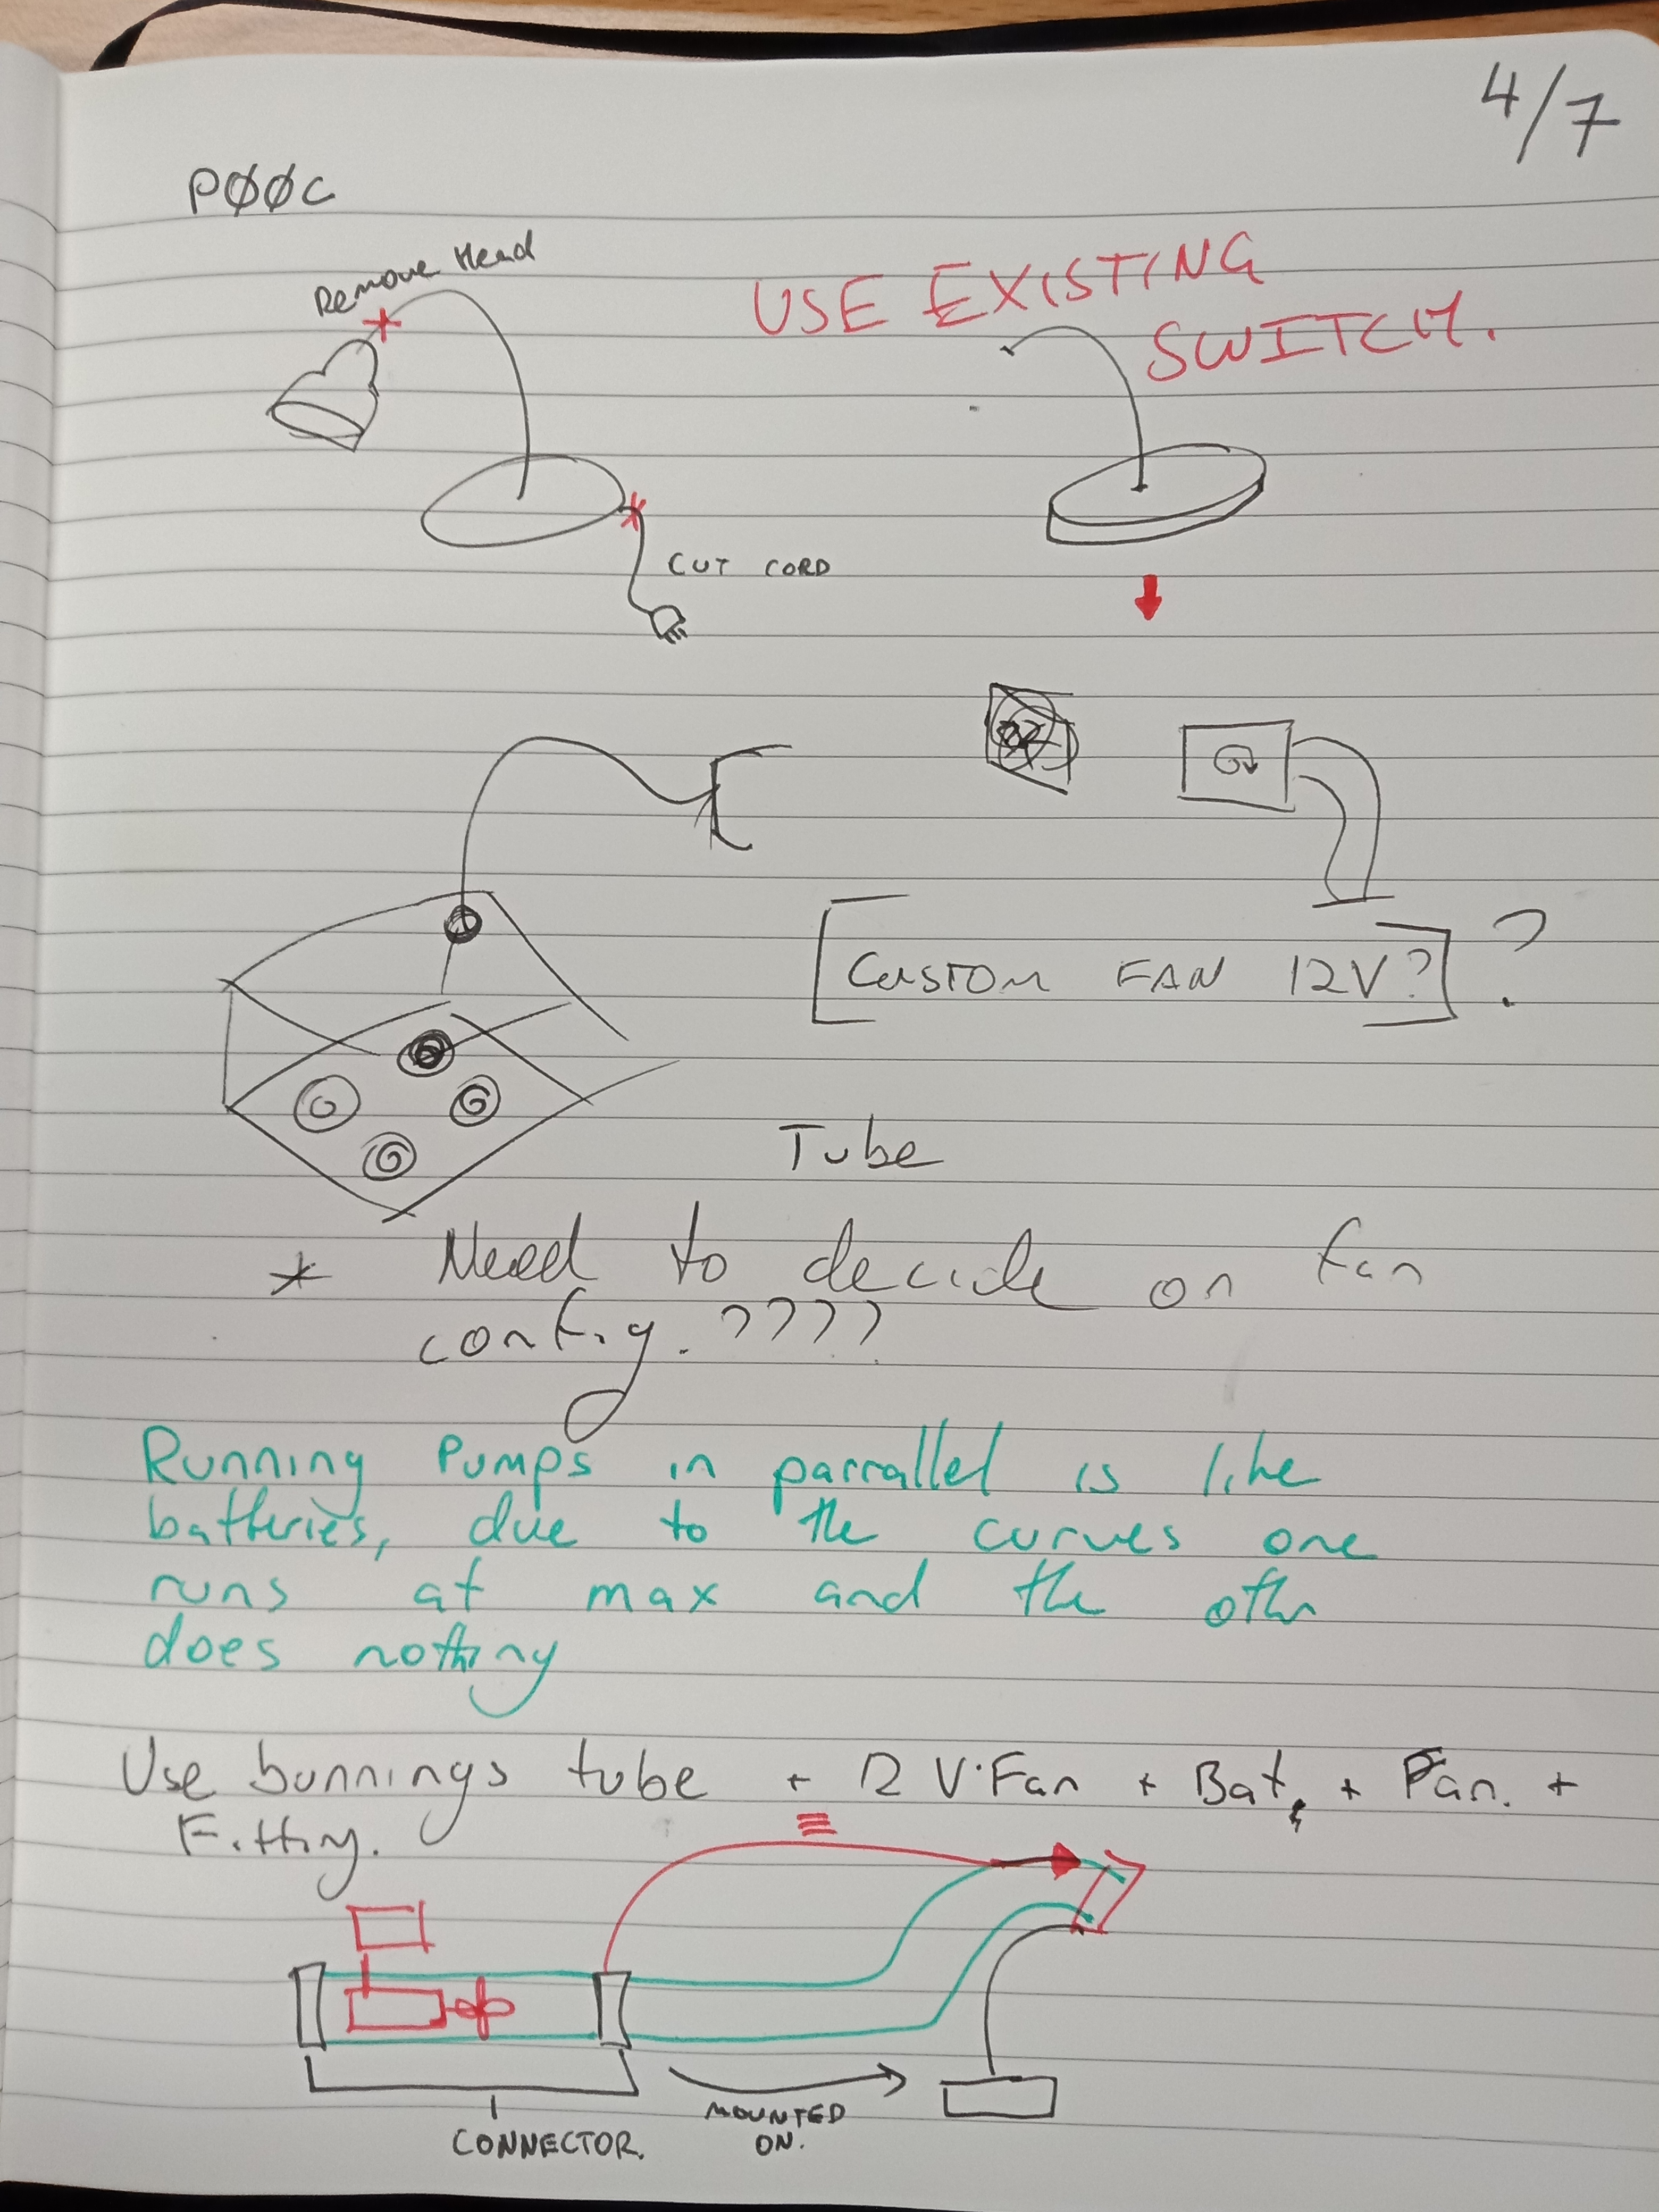 4/7
PØØC
Remove Head
USE EXISTING
SWITCH.
CUT CORD
[CUSTOM FAN 12V?] ?
Tube
* Need to decide on fan
config. ????
Running Pumps in parrallel is like
batteries, due to the curves one
runs at max and the othr
does nothing
Use bunnings tube + 12 V.Fan + Bat, + Fan. +
Fitting.
CONNECTOR.
MOUNTED
ON.